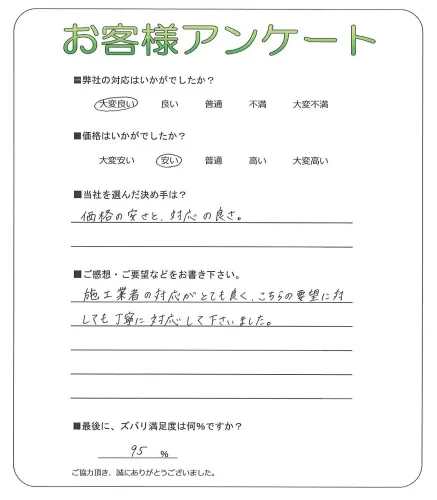 お客様アンケート
■弊社の対応はいかがでしたか？
大変良い 良い 普通 不満 大変不満
■価格はいかがでしたか？
大変安い 安い 普通 高い 大変高い
■当社を選んだ決め手は？
価格の安さと、対応の良さ。
■ご感想・ご要望などをお書き下さい。
施工業者の対応がとても良く、こちらの要望に対
しても丁寧に対応して下さいました。
■最後に、ズバリ満足度は何％ですか？
95 ％
ご協力頂き、誠にありがとうございました。